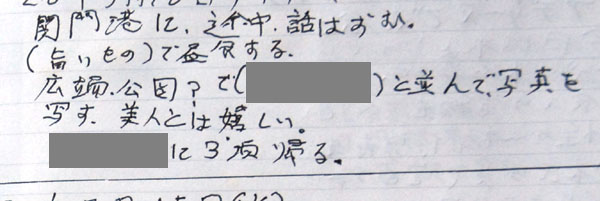 関門港に、途中、話はずむ。
(旨いもの)で昼食する。
広場、公園?で( )と並んで、写真を
写す、美人とは嬉しい。
に3°頃帰る。